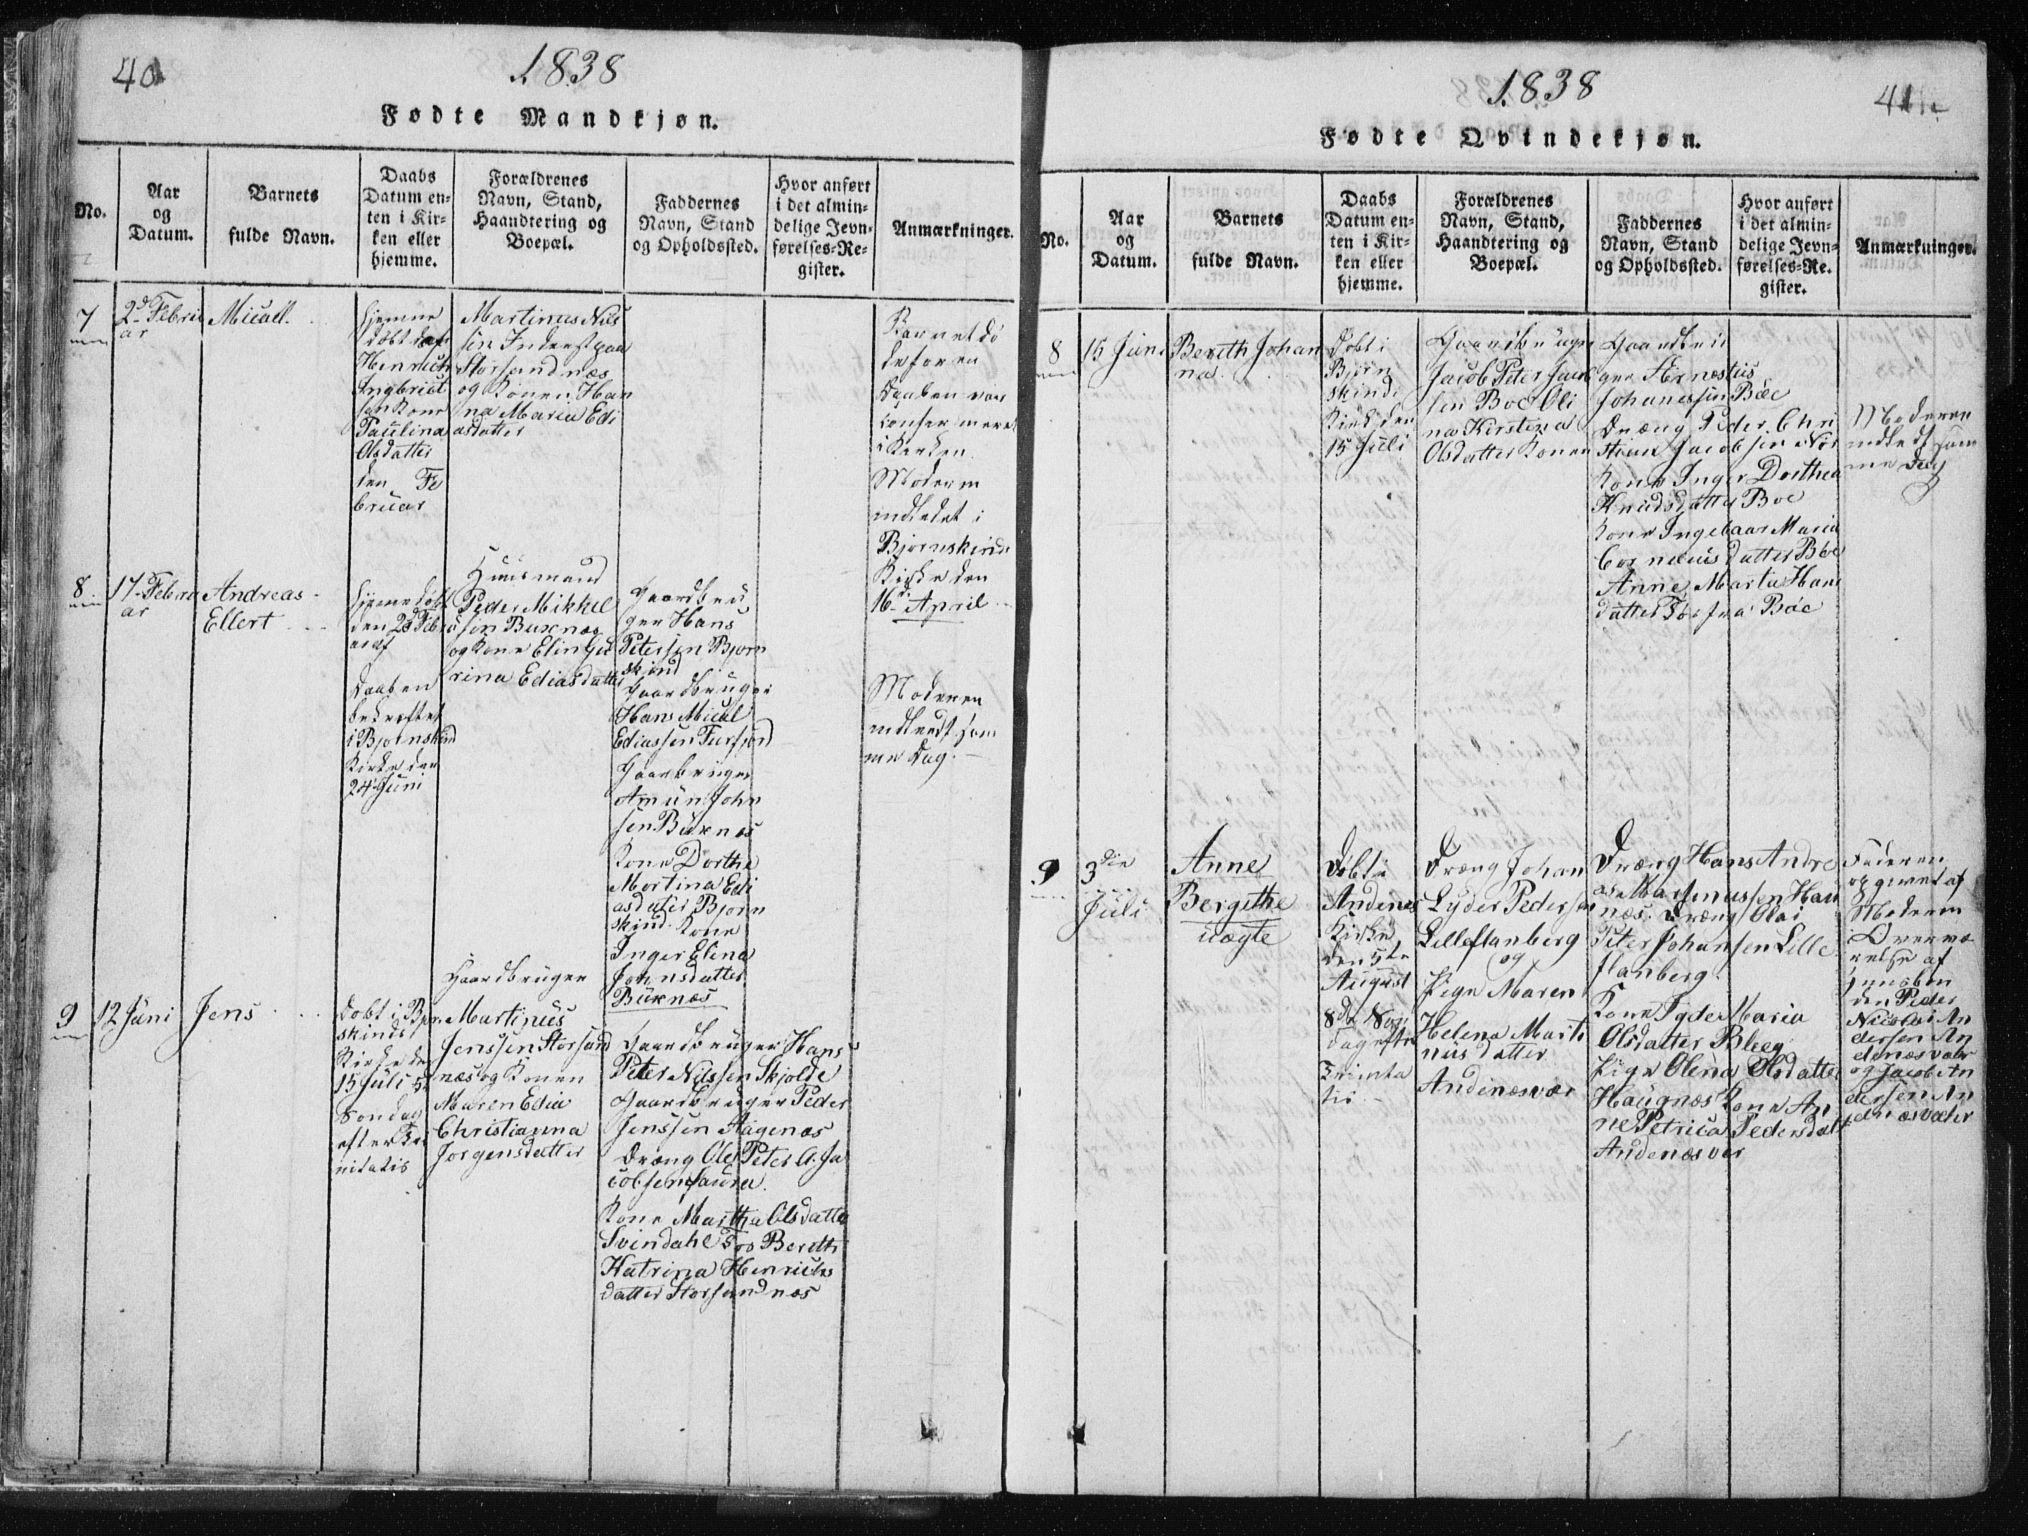 40
1838
Fødte Mandkjøn.
No.
Aar
og
Datum.
Barnets
fulde Navn.
Daabs
Datum en-
ten i Kir-
ken eller
hjemme.
Forældrenes
Navn, Stand,
Haandtering og
Boepæl.
Faddernes
Navn, Stand
og Opholdssted.
Hvor anført
i det almin-
delige Jevn-
førelses-Re-
gister.
Anmærkninger.
7
2d Febru
ar
Micall.
Hjemme
døbt af
Henrich
Ingbrigt
sen Kone
Paulina
Olsdatter
den Fe
bruar
Martinus Nils
sen Inderst paa
Storsandnæs
og Konen Han
na Maria Edi
asdatter
Barnet dø
de foren
Daaben var
Confermeret
i Kirken.
Moderen
indledet i
Bjørnskind
Kirke den
16de April
8
17 Febru
ar
Andreas
Ellert
Hjemedøbt
den 28 Febru
ar af
Daaben
bekræftet
i Bjørnskind
Kirke den
24 Juni
Huusmand
Peder Mikkel
sen Buxnæs
og Kone Elen Gu
rina Ediasdatter
Gaardbru
ger Hans
Petersen Bjørn
skind
Gaardbruger
Hans Mical
Ediassen Furfjord
Gaarbruger
Amun John
sen Buxnæs
Kone Dorthe
Martina Edi
asdater Bjørn
skind. Kone
Inger Elena
Johnsdatter
Buxnæs
Moderen
indledt sam
me Dag.
9
12 Juni
Jens
Døbt i Bjør
skinds
Kirke den
15 Juli 5t
Søndag
efter Tri
nitatis
Gaardbruger
Martinus
Jenssen Storsand
næs og Konen
Maren Edia
Christianna
Jørgensdatter
Gaardbruger Hans
Peter Nilssen Skjolde
Gaardbruger Peder
Jenssen Aagenæs
Dræng Ole Peter A. Ja
cobsen Saura.
Kone Martha Olsdatter
Svindahl Tøs Bereth
Katrina Henrichs
datter Storsandnæs
1838
41.
Fødte Qvindekjøn.
No.
Aar
og
Datum.
Barnets
fulde Navn.
Daabs
Datum en-
ten i Kir-
ken eller
hjemme.
Forældrenes
Navn, Stand,
Haandtering og
Boepæl.
Faddernes
Navn, Stand
og Opholdssted.
Hvor anført
i det almin-
delige Jevn-
førelses-Re-
gister.
Anmærkninger.
8
15 Juni
Bereth Johan
na.
Døbt i
Bjørn
skinds
Kirke den
15 Juli
Gaardbruger
Jacob Peter Jacob
sen Boe Oli
na Kirstina
Olsdatter Konen
Gaardbru
ger Arnestus
Johanessen Böe
Dræng Peder Chri
stian Jacobsen Nis
Kone Inger Dorthea
Knudsdatter Boe
Kone Ingebaar Maria
Corneliusdatter Böe
Anne Marta Hans
datter Tøs fra Böe
Moderen
indledt sam
me Dag
9
3die
Juli
Anne
Bergithe
uægte
Døbt i
Andenes
Kirke
den 5te
August
8de Søn
dag efter
Trinita
tis
Dræng Johan
Lyder Pedersen
Lilleflanberg
og
Pige Maren
Helena Marti
nus datter
Andenæsvær
Dræng Hans Andre
as Rasmussen Hau
næs. Dræng Olai
Peter Johansen Lille
flanberg.
Kone Igde Maria
Olsdatter Bleeg
Pige Olena Olsdatter
Haugnæs Kone An
ne Petrica Pedersdatt
Andenæsvær
Faderen
opgivet af
Moderen
i Overvæ
relse af
Jensøben
den Peder
Nicolai An
dersen An
denæsvær
og Jacob An
dersen An
denæsvæer